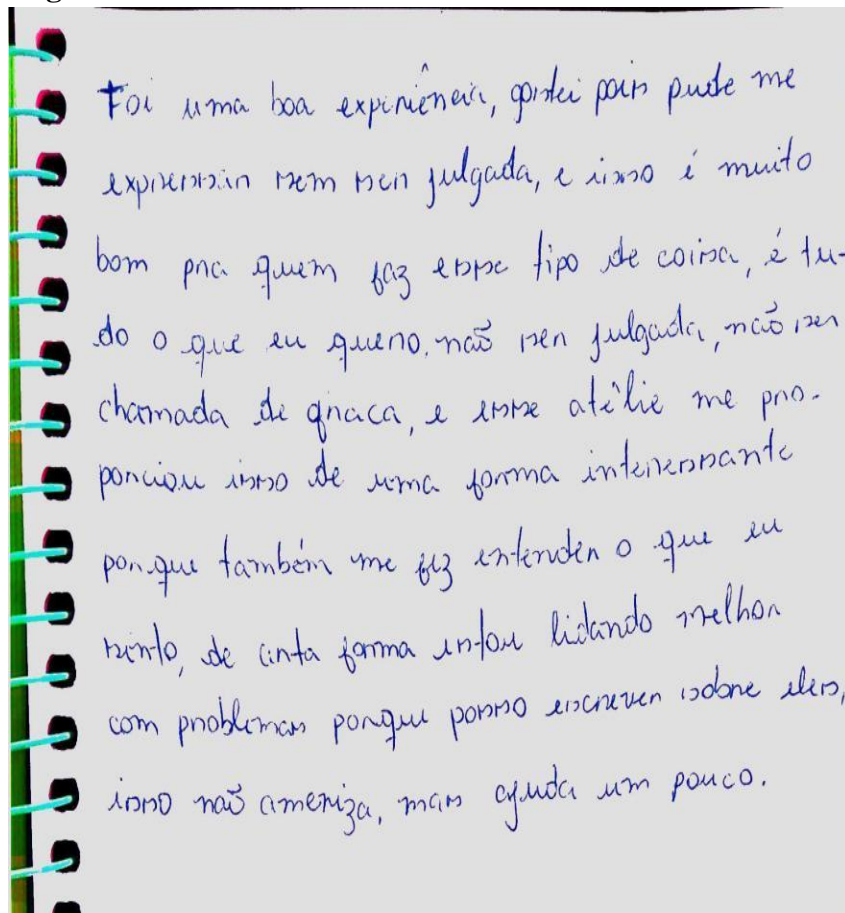 Foi uma boa experiência, gostei pois pude me
expressar sem ser julgada, e isso é muito
bom pra quem faz esse tipo de coisa, é tu-
do o que eu quero, não ser julgada, não ser
chamada de fraca, e esse atêlie me pro-
porciou isso de uma forma interessante
porque também me fez entender o que eu
sinto, de certa forma estou lidando melhor
com problemas porque posso escrever sobre eles,
isso não ameniza, mas ajuda um pouco.